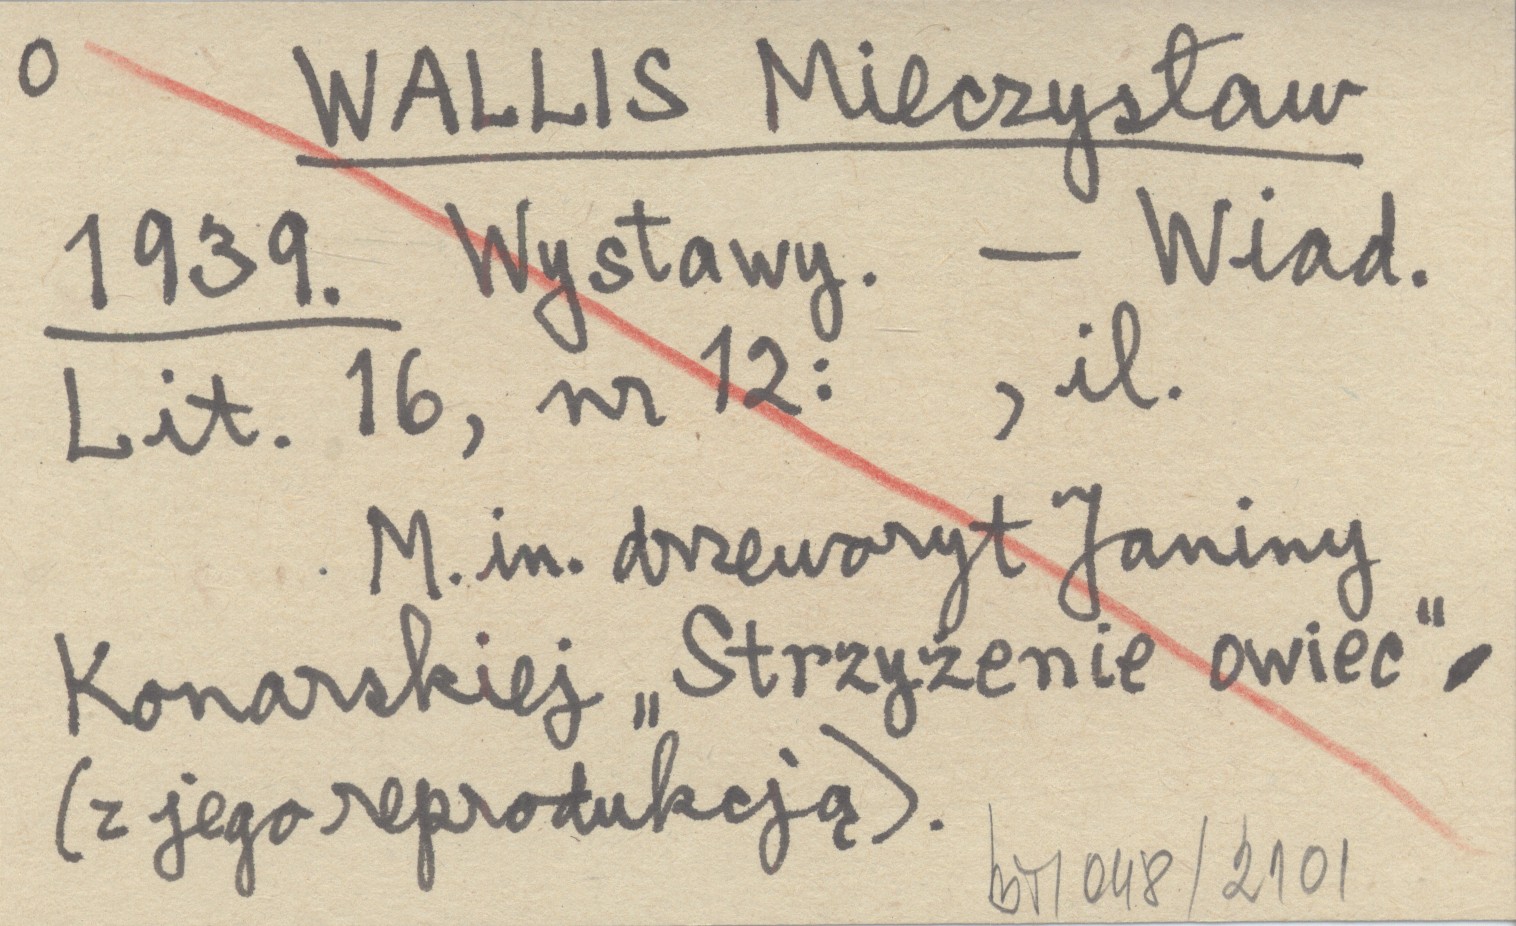 O WALLIS Mieczysław
1939. Wystawy. — Wiad.
Lit. 16, nr 12: , il.
M. in. drzeworyt Janiny
Konarskiej „Strzyżenie owiec“
(z jego reprodukcją).
048/2101